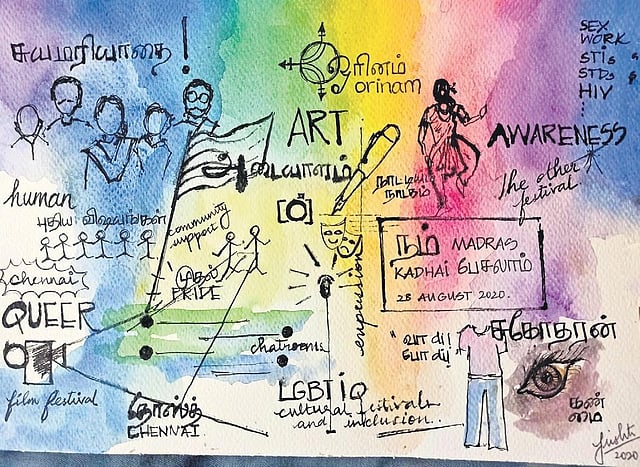 சுயமரியாதை!
ஓரினம்
orinam
SEX
WORK
STIs
STDs
HIV
ART
AWARENESS
அடையாளம்
the other
festival
நாட்டிய
நாடகம்
human
புதிய
community
support
நம் MADRAS
KADHAI பேசலாம்
28 AUGUST 2020.
chennai
PRIDE
QUEER
expression
chatrooms
"வா டி!
போ டி!
சகோதரன்
film festival
CHENNAI
LGBTiQ
cultural festivals
and inclusion..
2020